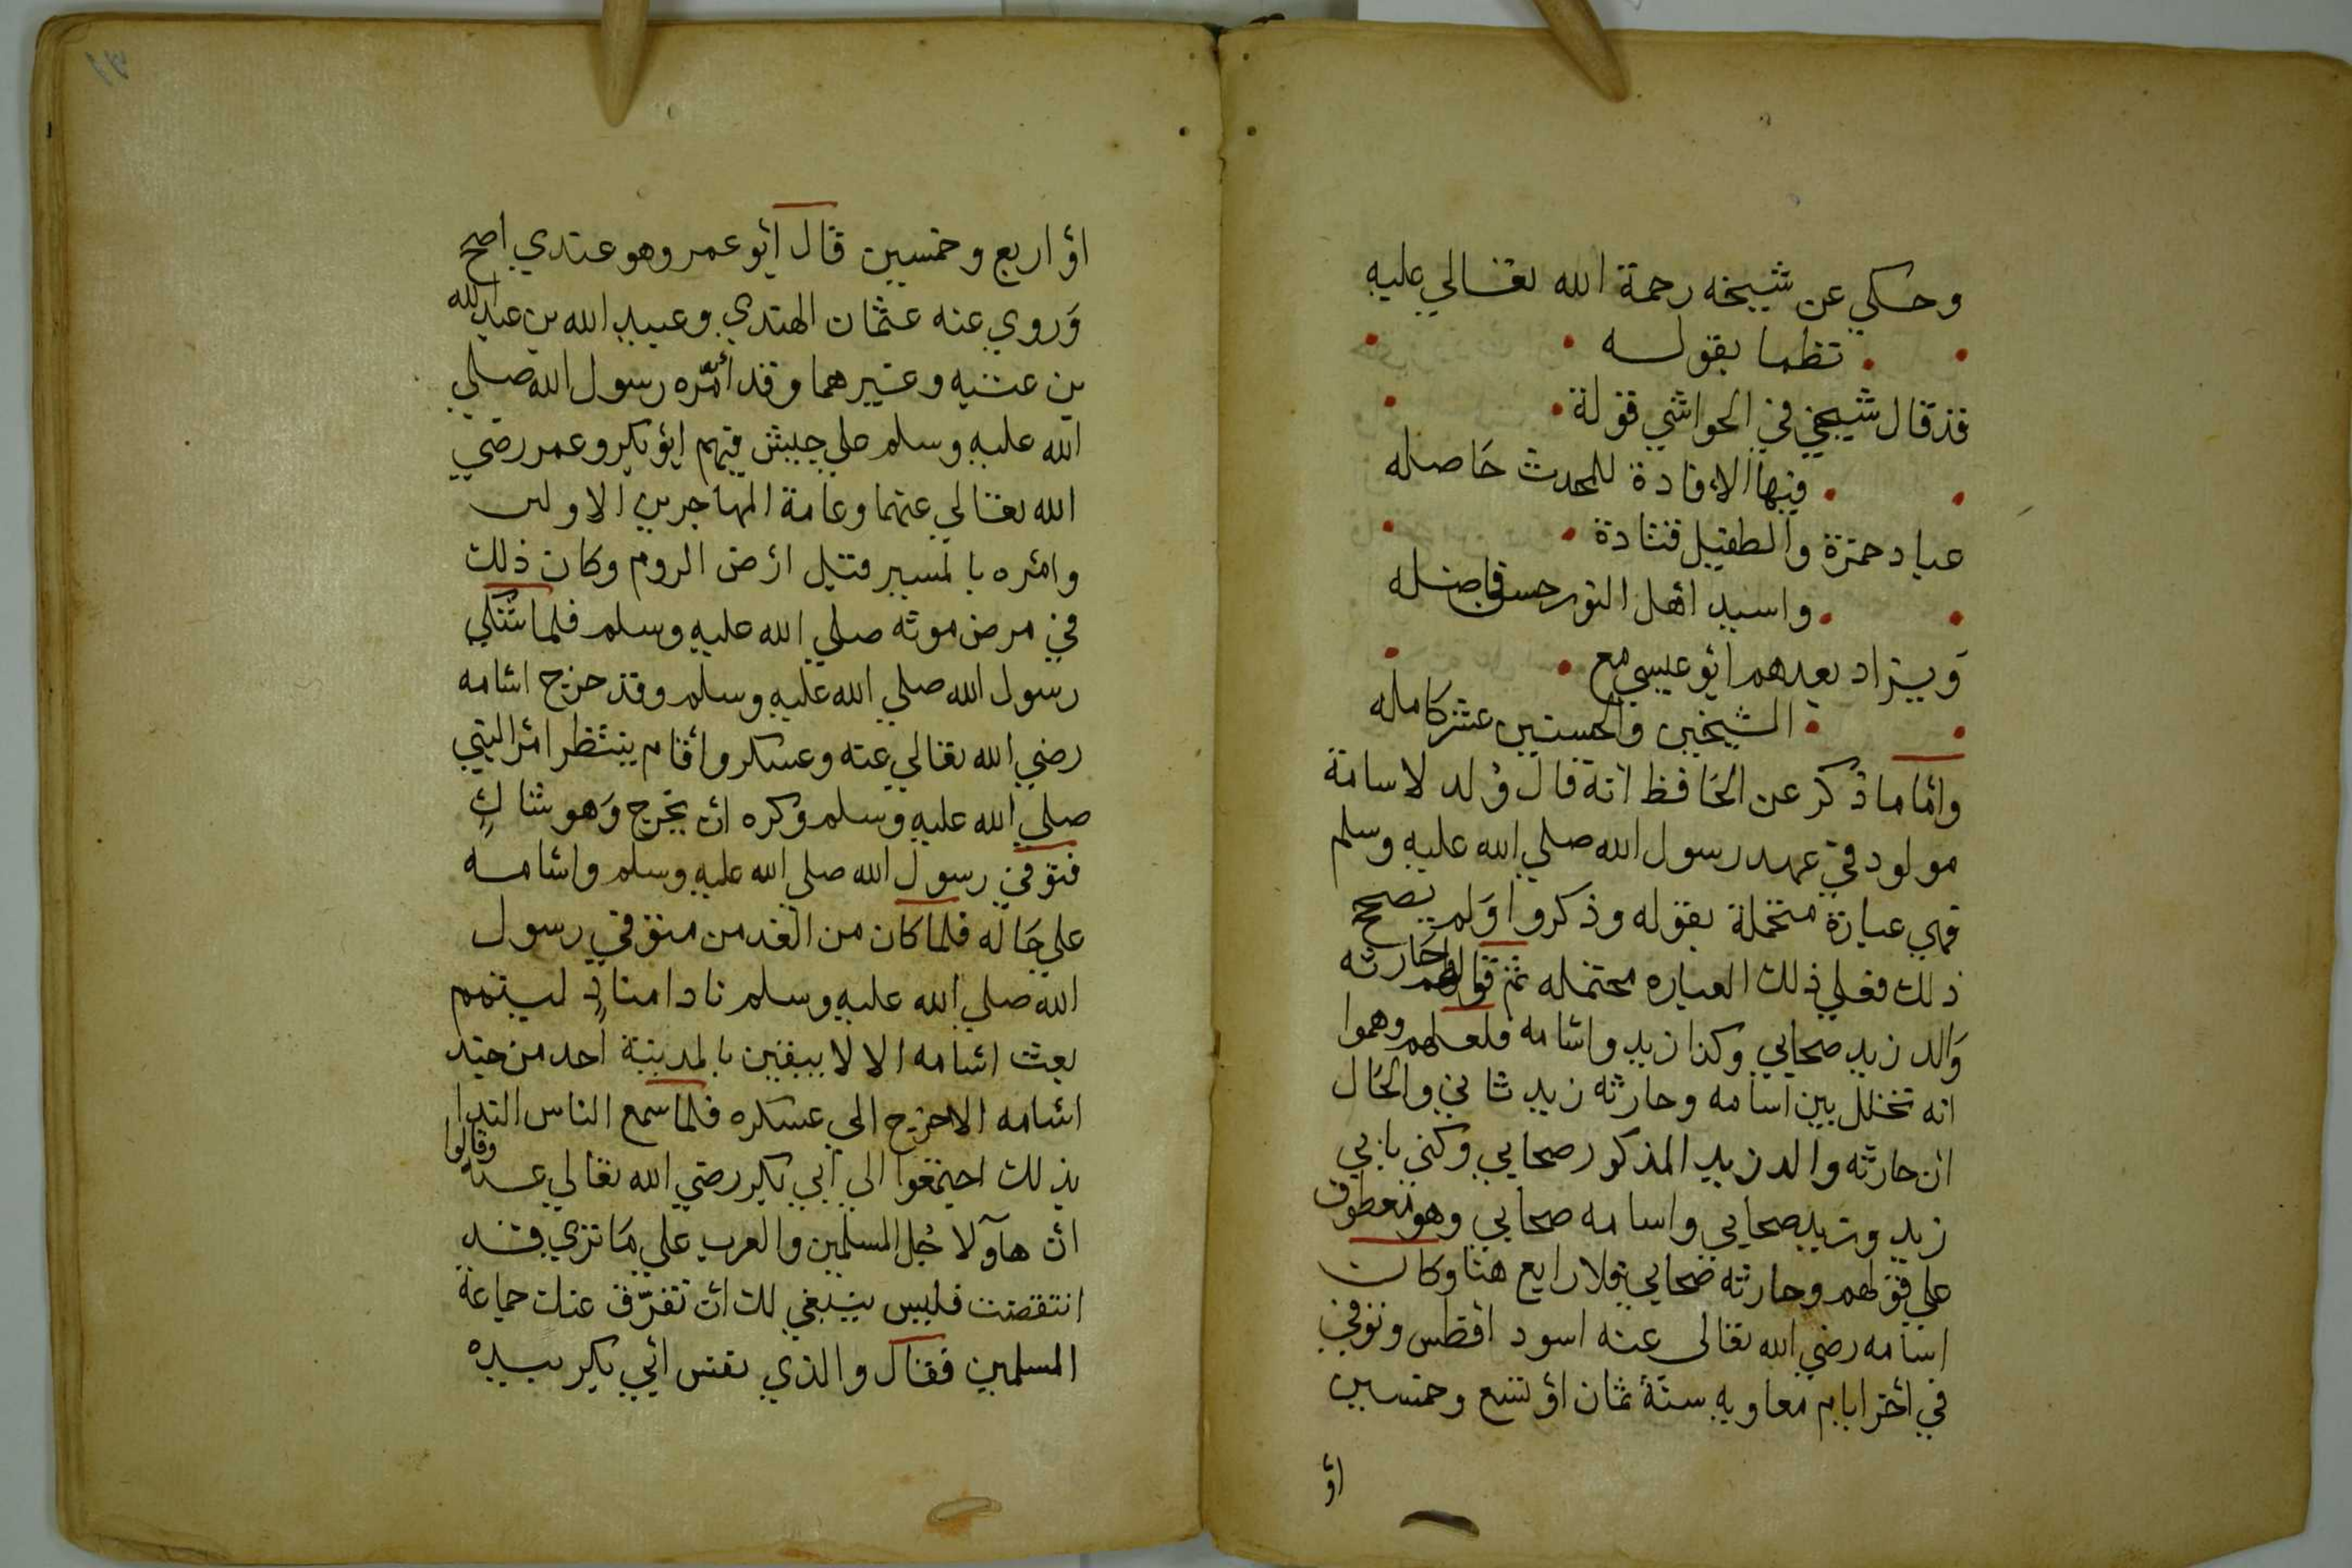 وحكي عن شيخه رحمة الله تعالي عليه
نظما بقوله
قد قال شيخي في الحواشي قولة
فيها الافادة للمحدث حاصله
عباد حمزة والطفيل قتادة
واسيد اهل النور حسن فاضله
ويزاد بعدهم ابو عيسي مع
الشيخين والحسنين عشر كامله
واما ما ذكر عن الحافظ انه قال ولد لاسامة
مولود في عهد رسول الله صلي الله عليه وسلم
فهي عبارة متحملة بقوله وذكروا ولم يصح
ذلك فعلي ذلك العباره محتمله ثم قولهم حارثه
والد زيد صحابي وكذا زيد واسامه فلعلهم وهموا
انه تخلل بين اسامه وحارثه زيد ثاني والحال
ان حارثه والد زيد المذكور صحابي وكني بابي
زيد وزيد صحابي واسامه صحابي وهو معطوف
علي قولهم وحارثه صحابي فلا رابع هنا وكان
اسامه رضي الله تعالى عنه اسود افطس وتوفي
في اخر ايام معاويه سنة ثمان او تسع وخمسين
او
او اربع وخمسين قال ابو عمر وهو عندي اصح
وروي عنه عثمان الهندي وعبيد الله بن عبد الله
بن عتبه وغيرهما وقد أمّره رسول الله صلي
الله عليه وسلم علي جيش فيهم ابو بكر وعمر رضي
الله تعالي عنهما وعامة المهاجرين الاولين
وامره بالمسير قتيل ارض الروم وكان ذلك
في مرض موته صلي الله عليه وسلم فلما شتكي
رسول الله صلي الله عليه وسلم وقد خرج اسامه
رضي الله تعالي عنه وعسكر واقام ينتظر امر النبي
صلي الله عليه وسلم وكره ان يخرج وهو شاكٍ
فتوفي رسول الله صلي الله عليه وسلم واسامه
علي حاله فلما كان من الغد من متوفي رسول
الله صلي الله عليه وسلم نادا منادٍ ليتمم
بعث اسامه الا لا يبقين بالمدينة احد من جند
اسامه الا خرج الي عسكره فلما سمع الناس الندا
بذلك اجتمعوا الي ابي بكر رضي الله تعالي عنه وقالوا
ان هآولا جُل المسلمين والعرب علي ما تري قد
انتقضت فليس ينبغي لك ان تفرّق عنك جماعة
المسلمين فقال والذي نفس ابي بكر بيده